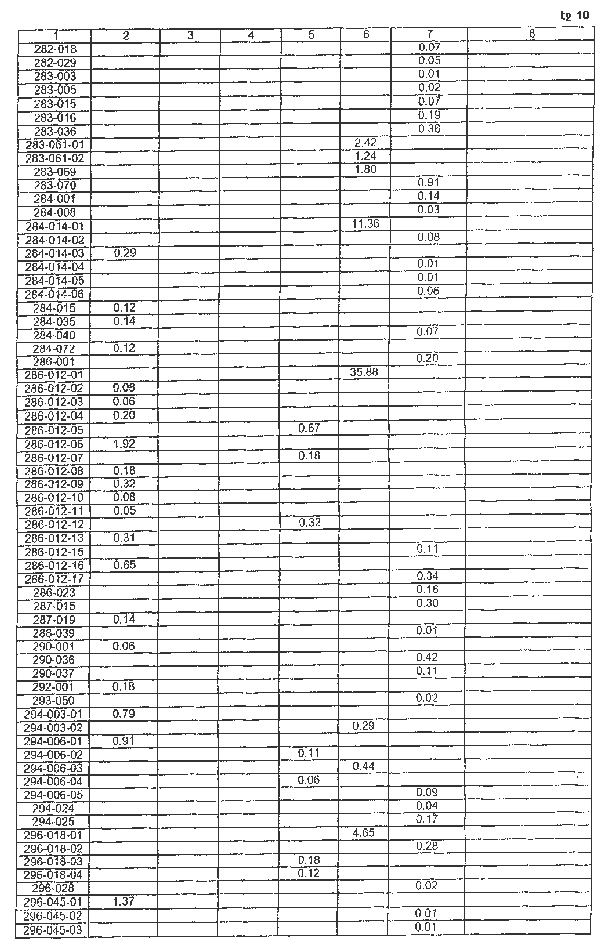 էջ 10
1 2 3 4 5 6 7 8
282-018 0.07
282-029 0.05
283-003 0.01
283-005 0.02
283-015 0.07
283-016 0.19
283-036 0.36
283-061-01 2.42
283-061-02 1.24
283-069 1.80
283-070 0.91
284-001 0.14
284-008 0.03
284-014-01 11.36
284-014-02 0.08
284-014-03 0.29
284-014-04 0.01
284-014-05 0.01
284-014-06 0.06
284-015 0.12
284-035 0.14
284-040 0.07
284-072 0.12
286-001 0.20
286-012-01 35.88
286-012-02 0.08
286-012-03 0.06
286-012-04 0.20
286-012-05 0.67
286-012-06 1.92
286-012-07 0.18
286-012-08 0.18
286-012-09 0.32
286-012-10 0.08
286-012-11 0.05
286-012-12 0.32
286-012-13 0.31
286-012-15 0.11
286-012-16 0.65
286-012-17 0.34
286-023 0.16
287-015 0.30
287-019 0.14
288-039 0.01
290-001 0.06
290-036 0.42
290-037 0.11
292-001 0.18
293-050 0.02
294-003-01 0.79
294-003-02 0.29
294-006-01 0.91
294-006-02 0.11
294-006-03 0.44
294-006-04 0.06
294-006-05 0.09
294-024 0.04
294-025 0.17
296-018-01 4.65
296-018-02 0.28
296-018-03 0.18
296-018-04 0.12
296-028 0.02
296-045-01 1.37
296-045-02 0.01
296-045-03 0.01